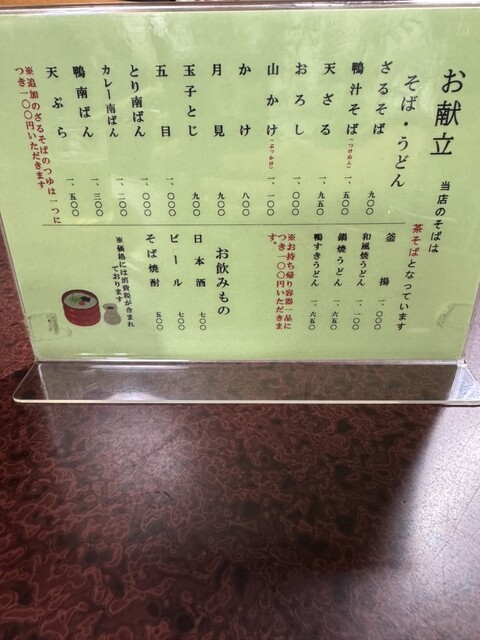 お献立
当店のそばは
茶そばとなっています
そば・うどん
ざるそば 九〇〇
鴨汁そば(つけあえ) 一、五〇〇
天ざる 一、九五〇
おろし 一、〇〇〇
山かけ(ぶっかけ) 一、一〇〇
かけ 八〇〇
月見 九〇〇
玉子とじ 九〇〇
五目 一、〇〇〇
とり南ばん 一、〇〇〇
カレー南ばん 一、二〇〇
鴨南ばん 一、五〇〇
天ぷら 一、
※追加のざるそばのつゆは一つに
つき一〇〇円いただきます
釜揚 一、〇〇〇
和風焼うどん 一、一〇〇
鍋焼うどん 一、六五〇
鴨すきうどん 一、六五〇
※お持ち帰り容器一品に
つき一〇〇円いただきま
す。
お飲みもの
日本酒 七〇〇
ビール 七〇〇
そば焼酎 五〇〇
※価格には消費税が含まれ
ております